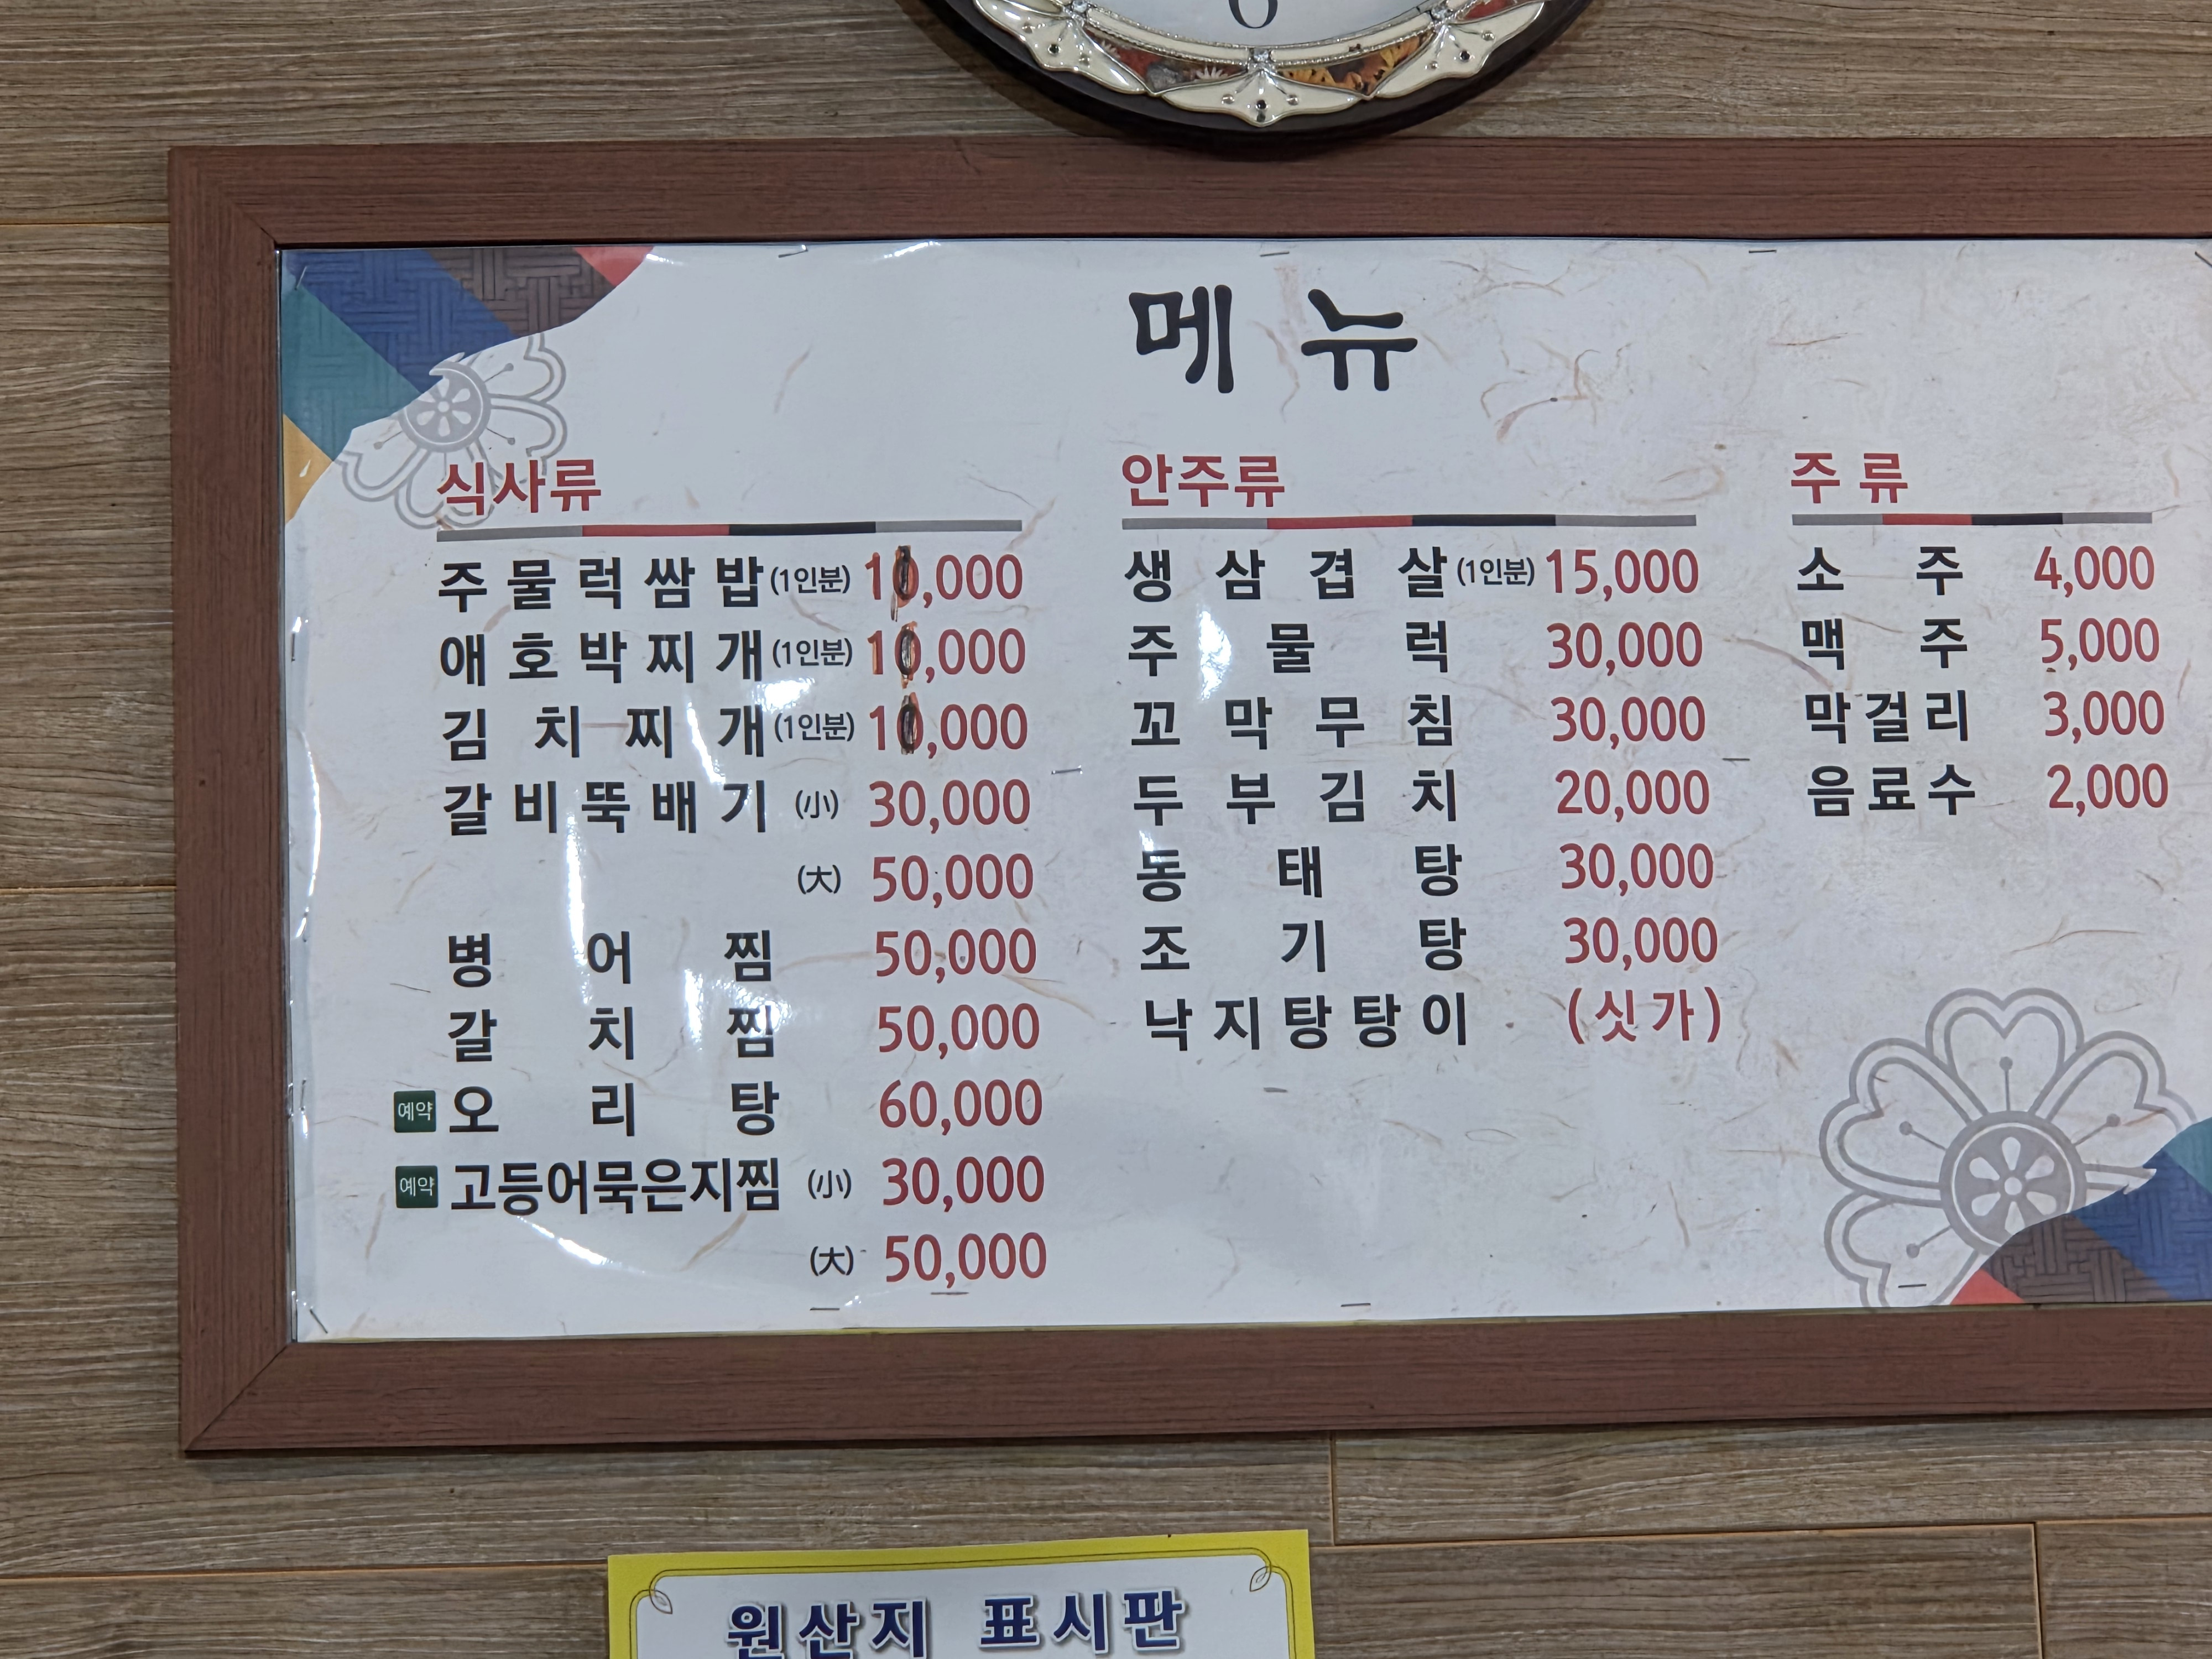 6
메뉴
식사류
주물럭쌈밥 (1인분) 10,000
애호박찌개 (1인분) 10,000
김치찌개 (1인분) 10,000
갈비뚝배기 (小) 30,000
(大) 50,000
병어찜 50,000
갈치찜 50,000
예약 오리탕 60,000
예약 고등어묵은지찜 (小) 30,000
(大) 50,000
안주류
생삼겹살 (1인분) 15,000
주물럭 30,000
꼬막무침 30,000
두부김치 20,000
동태탕 30,000
조기탕 30,000
낙지탕탕이 (싯가)
주류
소주 4,000
맥주 5,000
막걸리 3,000
음료수 2,000
원산지 표시판